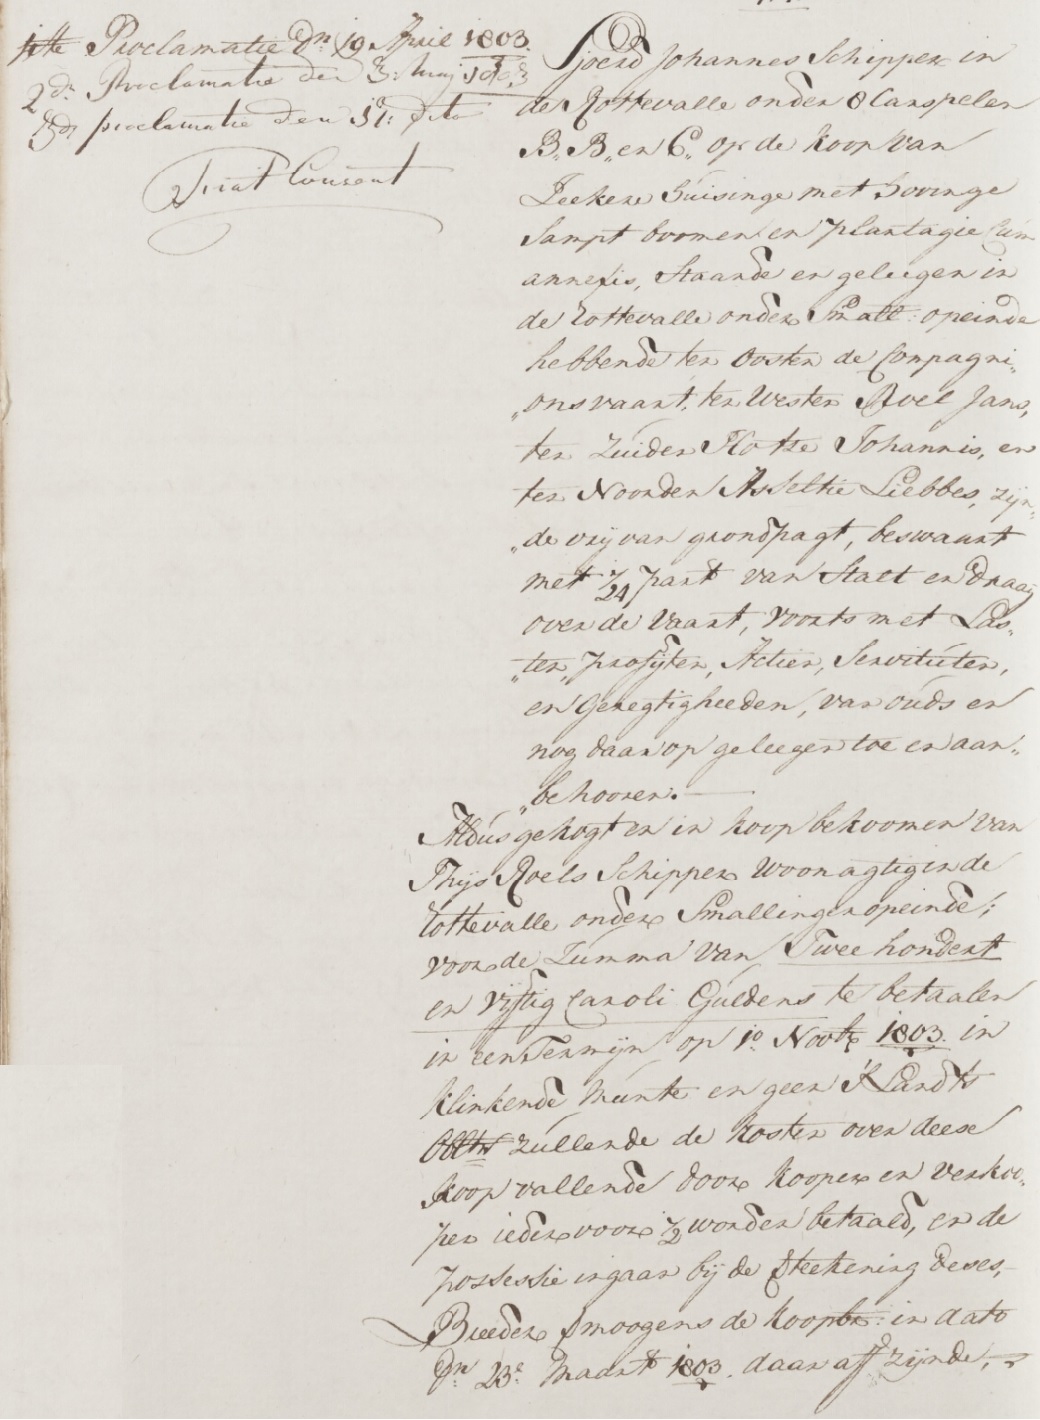 1ste Proclamatie dn 19 April 1803.
2de Proclamatie den 3: Maij 1803
3de proclamatie den 31: dito
Fiat Consent
Sjoerd Johannes Schipper in
de Rottevalle onder 8 Carspelen
B. B. en C. op de koop van
Seekere huisinge met hovinge
Sampt boomen en plantagie Cum
annexis, Staande en geleegen in
de Rottevalle onder Small: opeinde
hebbende ten Oosten de Compagni„
„onsvaart, ten Westen Roel Jans,
ten Zuiden Hotze Johannis, en
ten Noorden Asseltie Liebbes, zijn„
„de vrij van grondpagt, beswaart
met 1/24 part van Stall en draaij
over de vaart, voorts met Las„
„ten, profijten, Actien, Servituten,
en Geregtigheeden, van ouds en
nog daar op geleegen toe en aan„
„behooren.
Aldus gekogt en in koop bekoomen van
Thijs Roels Schipper woonagtig in de
Rottevalle onder Smallingeropeinde;
voor de Zumma van Twee hondert
en Vijftig Caroli Guldens te betaalen
in een Termijn op 1o Novbr 1803. in
klinkende Munte en geen 's Landts
zullende de kosten over deese
koop vallende door kooper en verkoo„
per ieder voor 1/2 worden betaald, en de
possessie ingaan bij de Teekening deses,
Breeder vermoogens de koopbr: in dato
dn 23e Maart 1803. daar aff zijnde,